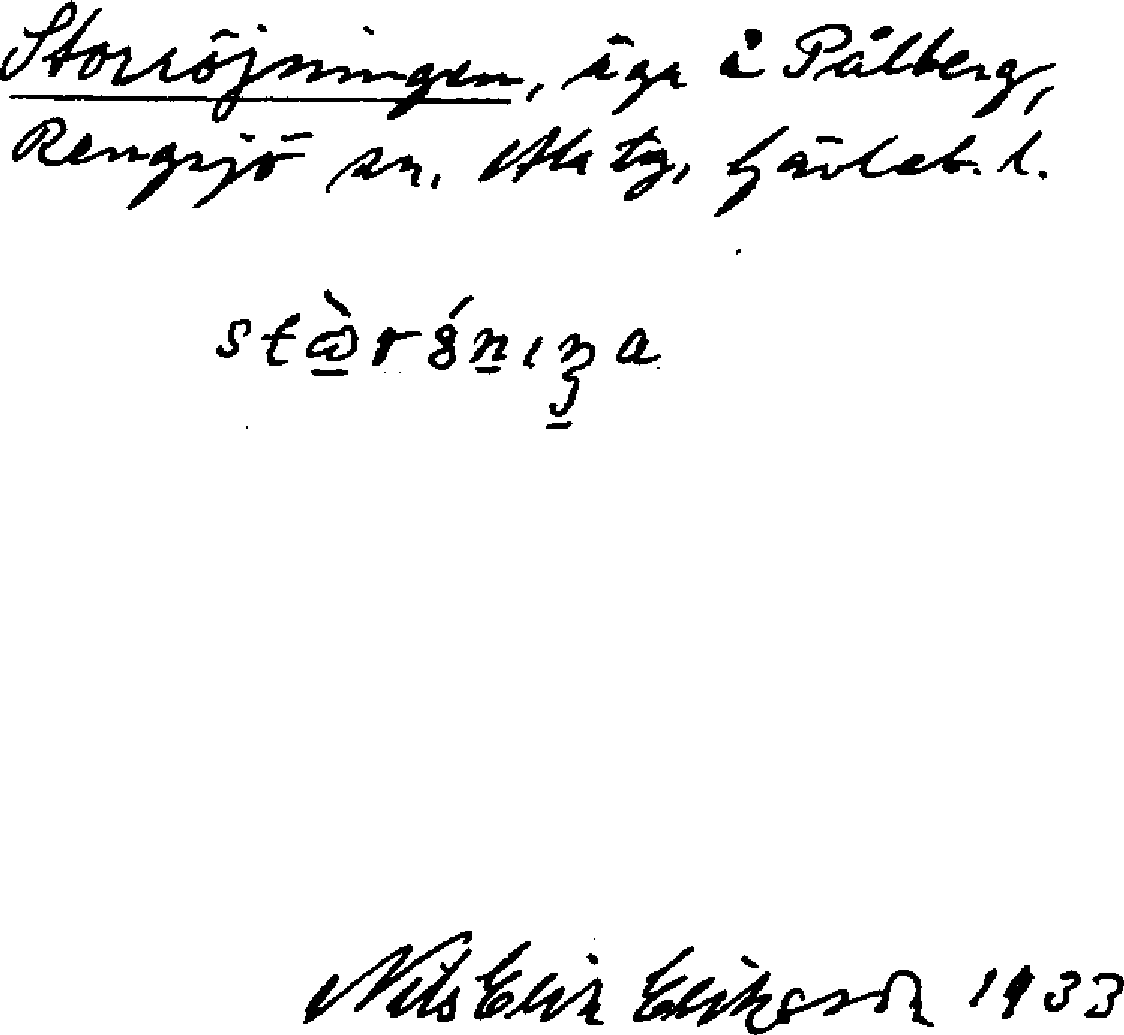 Storröjningen, äga å Pålberg,
Rengsjö sn. Ala tg, Gävleb. l.
Nils Erik Eriksson 1933